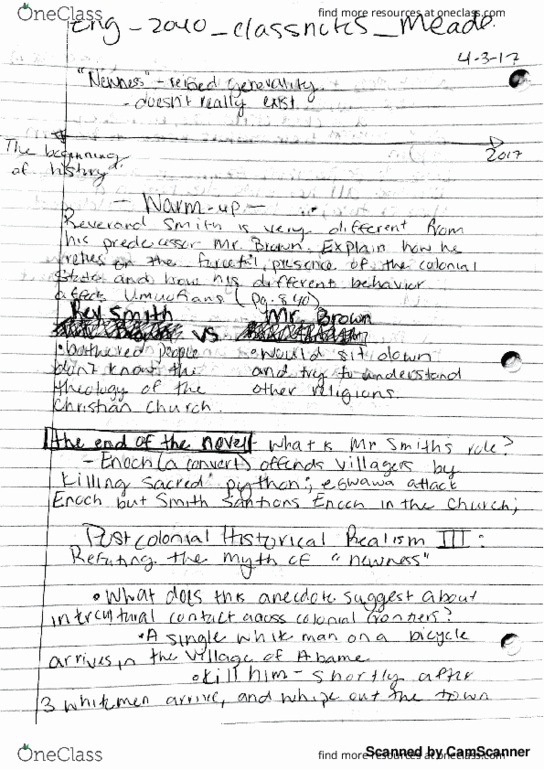 OneClass
find more resources at oneclass.com
Eng-2040_classnotes_Meade
4-3-17
"Newness" - generality
- doesn't really exist.
"The beginning
of history"
2017
- Warm-up -
Reverand Smith is very different from
his predecessor Mr. Brown. Explain how he
relies on the forceful presence of the colonial
state and how his different behavior
affects Umuofians (pg. 840)
Rev Smith Mr. Brown
vs
• bothered people • would sit down
don't know the and try to understand
theology of the other religions.
Christian church.
the end of the novel - what is Mr Smiths role?
- Enoch (a convert) offends villagers by
killing sacred python; egwawa attack
Enoch but Smith Enoch in the church;
Postcolonial Historical Realism III:
Refuting the myth of "newness"
• What does this anecdote suggest about
intercultural contact across colonial fronteers?
• A single white man on a bicycle
arrives in the village of Abame
• kill him - shortly after
3 whitemen arrive, and whipe out the town
OneClass
find more resources at oneclass.com
Scanned by CamScanner